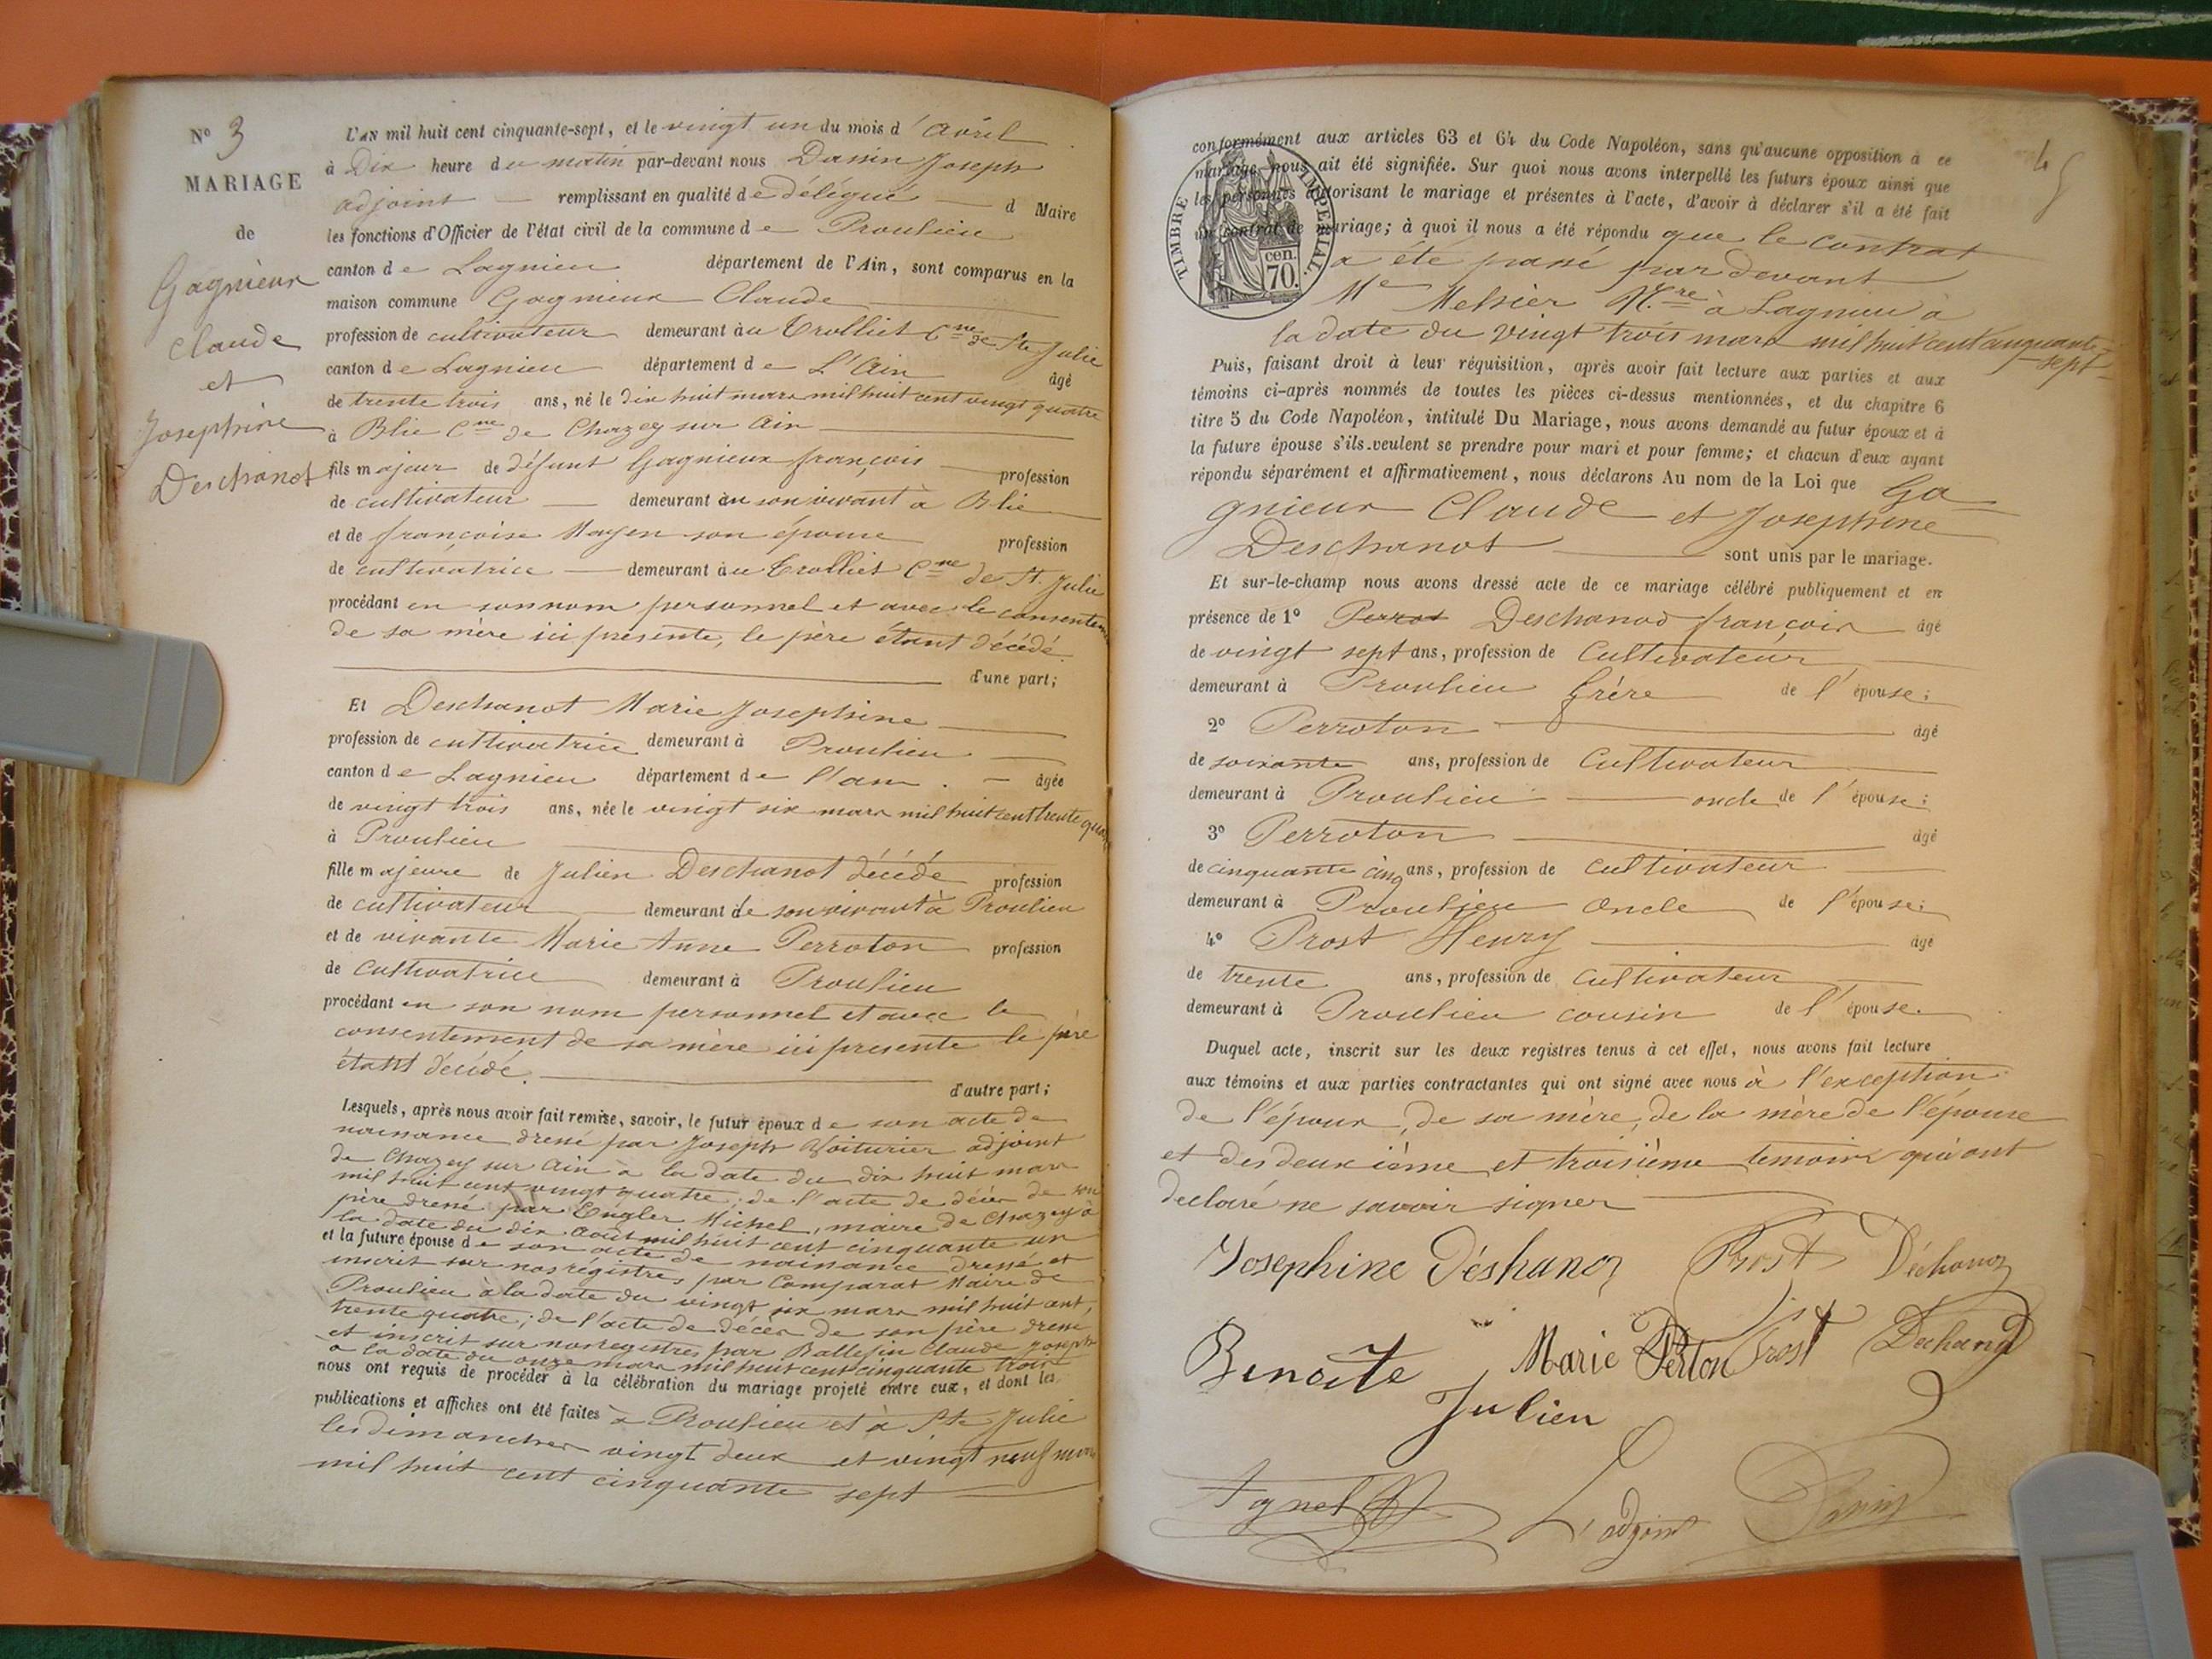 N° 3
MARIAGE
de
Gagnieux
Claude
et
Josephine
Deschanot
L'AN mil huit cent cinquante-sept, et le vingt un du mois d'avril
à Dix heure du matin par-devant nous Danin Joseph
adjoint remplissant en qualité de délégué d Maire
les fonctions d'Officier de l'état civil de la commune de Proulieu
canton de Lagnieu département de l'Ain, sont comparus en la
maison commune Gagnieux Claude
profession de cultivateur demeurant au Trolliet Cne de Ste Julie
canton de Lagnieu département de L'Ain âgé
de trente trois ans, né le dix huit mars mil huit cent vingt quatre
à Blie Cne de Chazey sur Ain
fils majeur de défunt Gagnieux françois profession
de cultivateur demeurant en son vivant à Blie
et de françoise Mayen son épouse profession
de cultivatrice demeurant au Trolliet Cne de St. Julie
procédant en son nom personnel et avec le consentem
de sa mère ici présente, le père étant décédé.
d'une part;
Et Deschanot Marie Josephine
profession de cultivatrice demeurant à Proulieu
canton de Lagnieu département de l'ain. âgée
de vingt trois ans, née le vingt six mars mil huit cent trente quatre
à Proulieu
fille majeure de Julien Deschanot décédé profession
de cultivateur demeurant de son vivant à Proulieu
et de vivante Marie Anne Perroton profession
de cultivatrice demeurant à Proulieu
procédant en son nom personnel et avec le
consentement de sa mère ici presente le père
étant décédé.
d'autre part;
Lesquels, après nous avoir fait remise, savoir, le futur époux de son acte de
naissance dressé par Joseph Voiturier adjoint
de Chazey sur Ain à la date du dix huit mars
mil huit cent vingt quatre; de l'acte de décès de son
père dressé par Engler Michel, maire de Chazey à
la date du dix août mil huit cent cinquante un
et la future épouse de son acte de naissance dressé et
inscrit sur nos régistres par Comparat Maire de
Proulieu à la date du vingt six mars mil huit cent,
trente quatre; de l'acte de décès de son père dressé
et inscrit sur nos registres par Ballefin Claude Joseph
à la date du onze mars mil huit cent cinquante trois
nous ont requis de procéder à la célébration du mariage projeté entre eux, et dont les
publications et affiches ont été faites à Proulieu et à Ste Julie
les dimanches vingt deux et vingt neuf mars
mil huit cent cinquante sept
45
TIMBRE IMPERIAL.
cen.
70.
conformément aux articles 63 et 64 du Code Napoléon, sans qu'aucune opposition à ce
mariage nous ait été signifiée. Sur quoi nous avons interpellé les futurs époux ainsi que
les personnes autorisant le mariage et présentes à l'acte, d'avoir à déclarer s'il a été fait
un contrat de mariage; à quoi il nous a été répondu que le contrat
a été passé par devant
Me Melsier Nre à Lagnieu à
la date du vingt trois mars mil huit cent cinquante-
sept
Puis, faisant droit à leur réquisition, après avoir fait lecture aux parties et aux
témoins ci-après nommés de toutes les pièces ci-dessus mentionnées, et du chapitre 6
titre 5 du Code Napoléon, intitulé Du Mariage, nous avons demandé au futur époux et à
la future épouse s'ils veulent se prendre pour mari et pour femme; et chacun d'eux ayant
répondu séparément et affirmativement, nous déclarons Au nom de la Loi que Ga-
gnieux Claude et Josephine
Deschanot sont unis par le mariage.
Et sur-le-champ nous avons dressé acte de ce mariage célébré publiquement et en
présence de 1° Perrot Deschanod françois âgé
de vingt sept ans, profession de Cultivateur
demeurant à Proulieu frère de l'épouse;
2° Perroton âgé
de soixante ans, profession de Cultivateur
demeurant à Proulieu oncle de l'épouse;
3° Perroton âgé
de cinquante cinq ans, profession de cultivateur
demeurant à Proulieu Oncle de l'épouse;
4° Prost Henry âgé
de trente ans, profession de Cultivateur
demeurant à Proulieu cousin de l'épouse.
Duquel acte, inscrit sur les deux registres tenus à cet effet, nous avons fait lecture
aux témoins et aux parties contractantes qui ont signé avec nous à l'exception
de l'époux, de sa mère, de la mère de l'épouse
et des deuxième et troisième temoins qui ont
declaré ne savoir signer
Josephine Déshanoz Prost Déchanoz
Benoite Marie Perton Prost Dechanoz
Julien
Agnel L'adjoint Danin